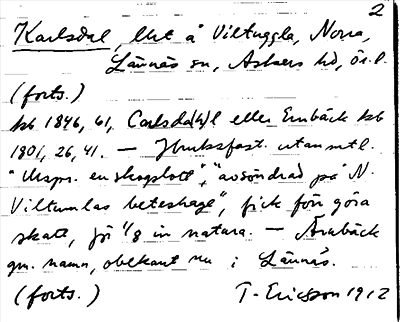 2
Karlsdal, lht å Viltuggla, Norra,
Lännäs sn, Askers hd, Ör.l.
(forts.)
kb 1846, 61, Carlsda(h)l eller Ernbäck kb
1801, 26, 41. — utan mtl.
"Urspr. en skogslott", "avsöndrad på N.
Viltumlas beteshage", fick förr göra
skatt, jfr 1/8 in natura. — Ärnbäck
gm. namn, obekant nu i Lännäs.
(forts.) T. Ericsson 1912